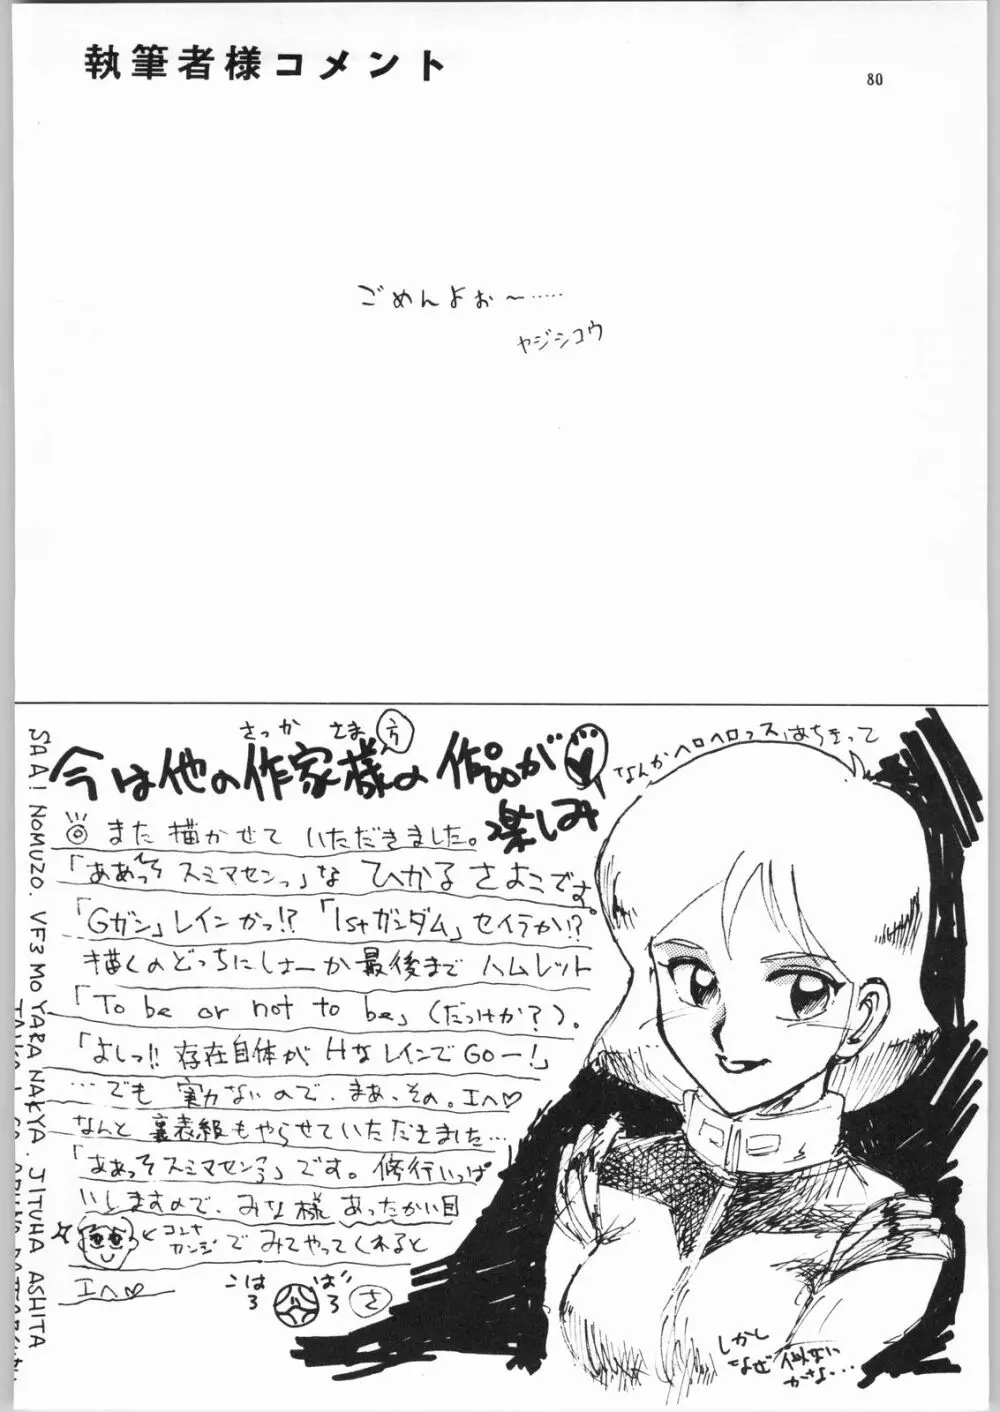 執筆者様コメント
80
ごめんよぉ〜……
ヤジシコウ
さっか さま
今は他の作家様の作品が
方
楽しみ
なんかヘロヘロっス
また描かせて いただきました。
「ああっそスミマセンっ」な ひかるさよこです。
「Gガン」レインかっ!? 「1stガンダム」セイラか!?
描くのどっちにしよーか最後まで ハムレット
「To be or not to be」(だっけか?)。
「よしっ!! 存在自体が Hな レインでGOー!」
…でも 実力ないので、まあ、その。エヘ♡
なんと裏表紙もやらせていただきました…
「ああっそスミマセンっ」です。修行いっぱ
いしますので、みな様 あったかい目
コンナ
カンジ
で みてやってくれると
エヘ♡
さ
SAA! NOMUZO. VF3 MO YARANAKYA. JITUHA ASHITA
しかし
なぜ 似ない
かな…